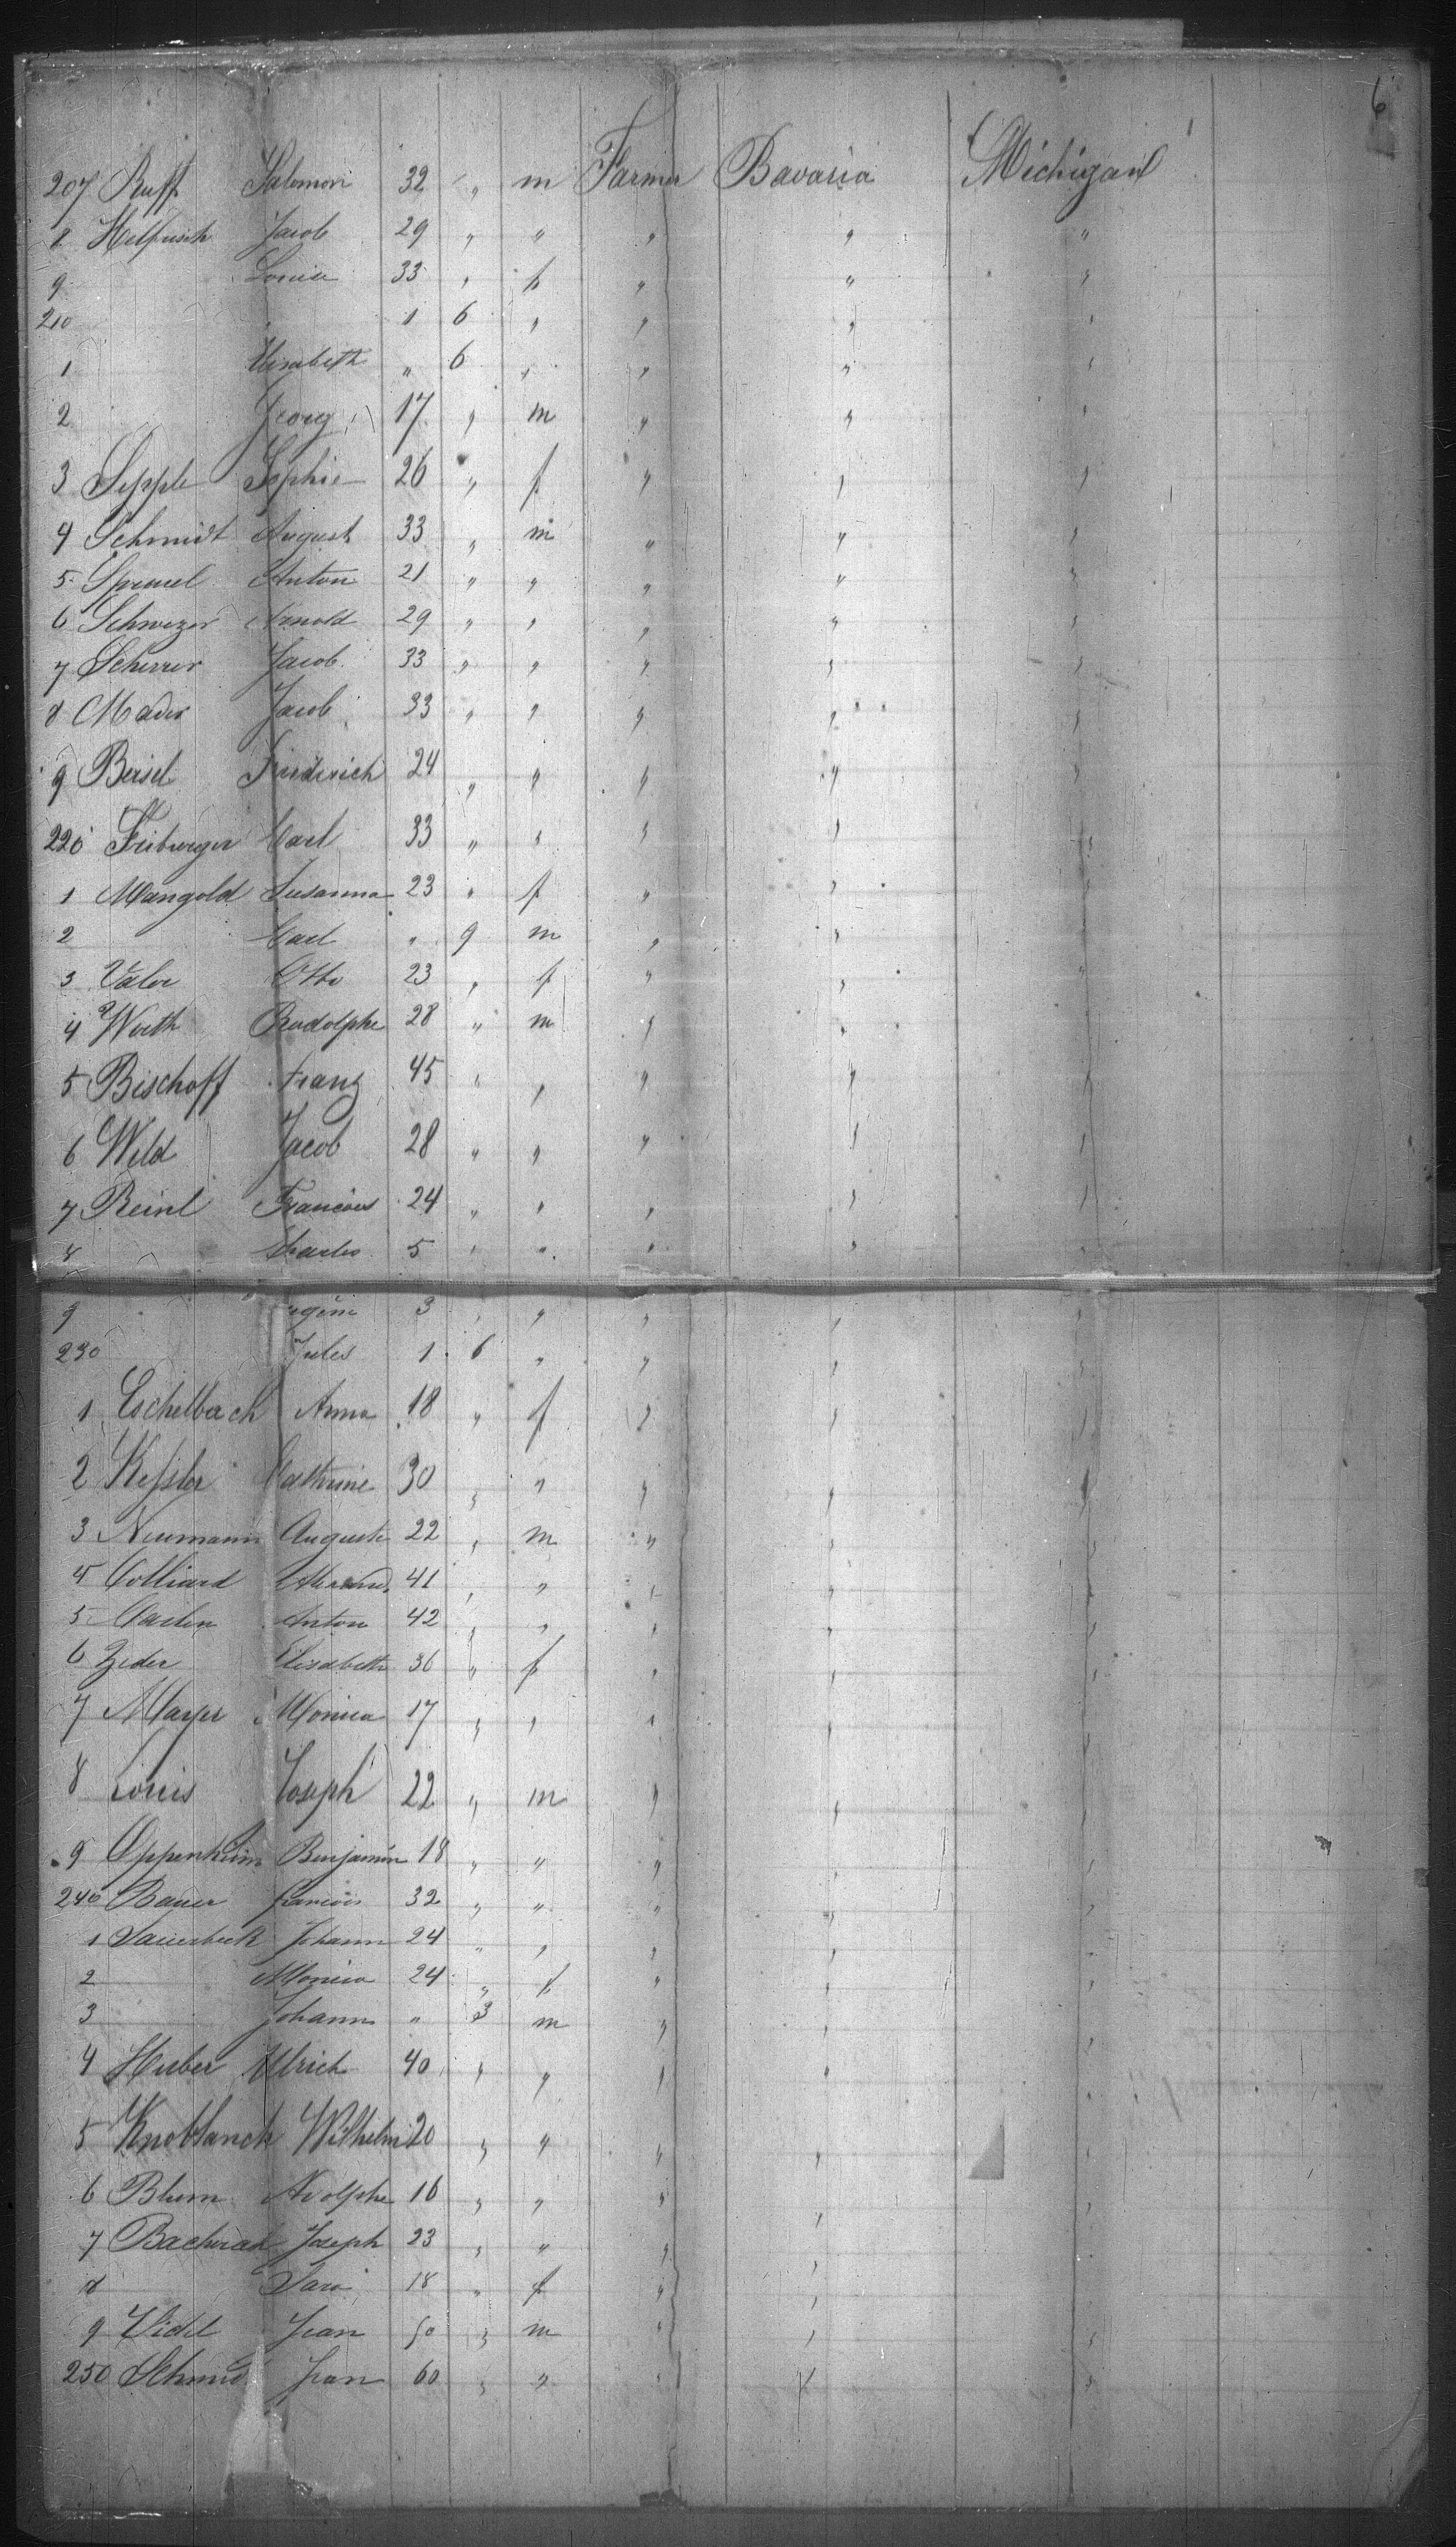 6
207 Ruff Salomon 32 " m Farmer Bavaria Michigan
8 Jacob 29 " " " " "
9 Louise 33 " f " " "
210 1 6 " " " "
1 Elisabeth " 6 " " " "
2 Georg 17 " m " " "
3 Sepple Sophie 26 " f " " "
4 Schmidt August 33 " m " " "
5 Anton 21 " " " " "
6 Schweizer Arnold 29 " " " " "
7 Scherrer Jacob 33 " " " " "
8 Mader Jacob 33 " " " " "
9 Beisel Friderich 24 " " " " "
220 Freiburger Carl 33 " " " " "
1 Mangold Susanna 23 " f " " "
2 Carl " 9 m " "
3 Valer Otto 23 " f " " "
4 Worth Rudolphe 28 " m " "
5 Bischoff Franz 45 " " " " "
6 Wild Jacob 28 " " " " "
7 Reinl Francois 24 " " " " "
8 Charles 5 " " " "
9 3 " " " "
230 Jules 1 6 " " " "
1 Eschelbach Anna 18 " f " " "
2 Kessler Cathrine 30 " " " " "
3 Neumann Auguste 22 " m " " "
4 Colliard 41 " " " " "
5 Carlen Anton 42 " " " " "
6 Zeder Elisabeth 36 " f " " "
7 Mayer Monica 17 " " " "
8 Louis Joseph 22 " m " "
9 Oppenheim Benjamin 18 " " " " "
240 Bauer francois 32 " " " " "
1 Sauerbeck Johann 24 " " " " "
2 Monica 24 " f " " "
3 Johann " 3 m " " "
4 Huber Ulrich 40 " " " " "
5 Knoblauch Wilhelm 20 " " " "
6 Blum Adolphe 16 " " " " "
7 Bacherach Joseph 23 " " " " "
8 Sara 18 " f " "
9 Jean 50 " m " " "
250 Schmid Jean 60 " " " " "